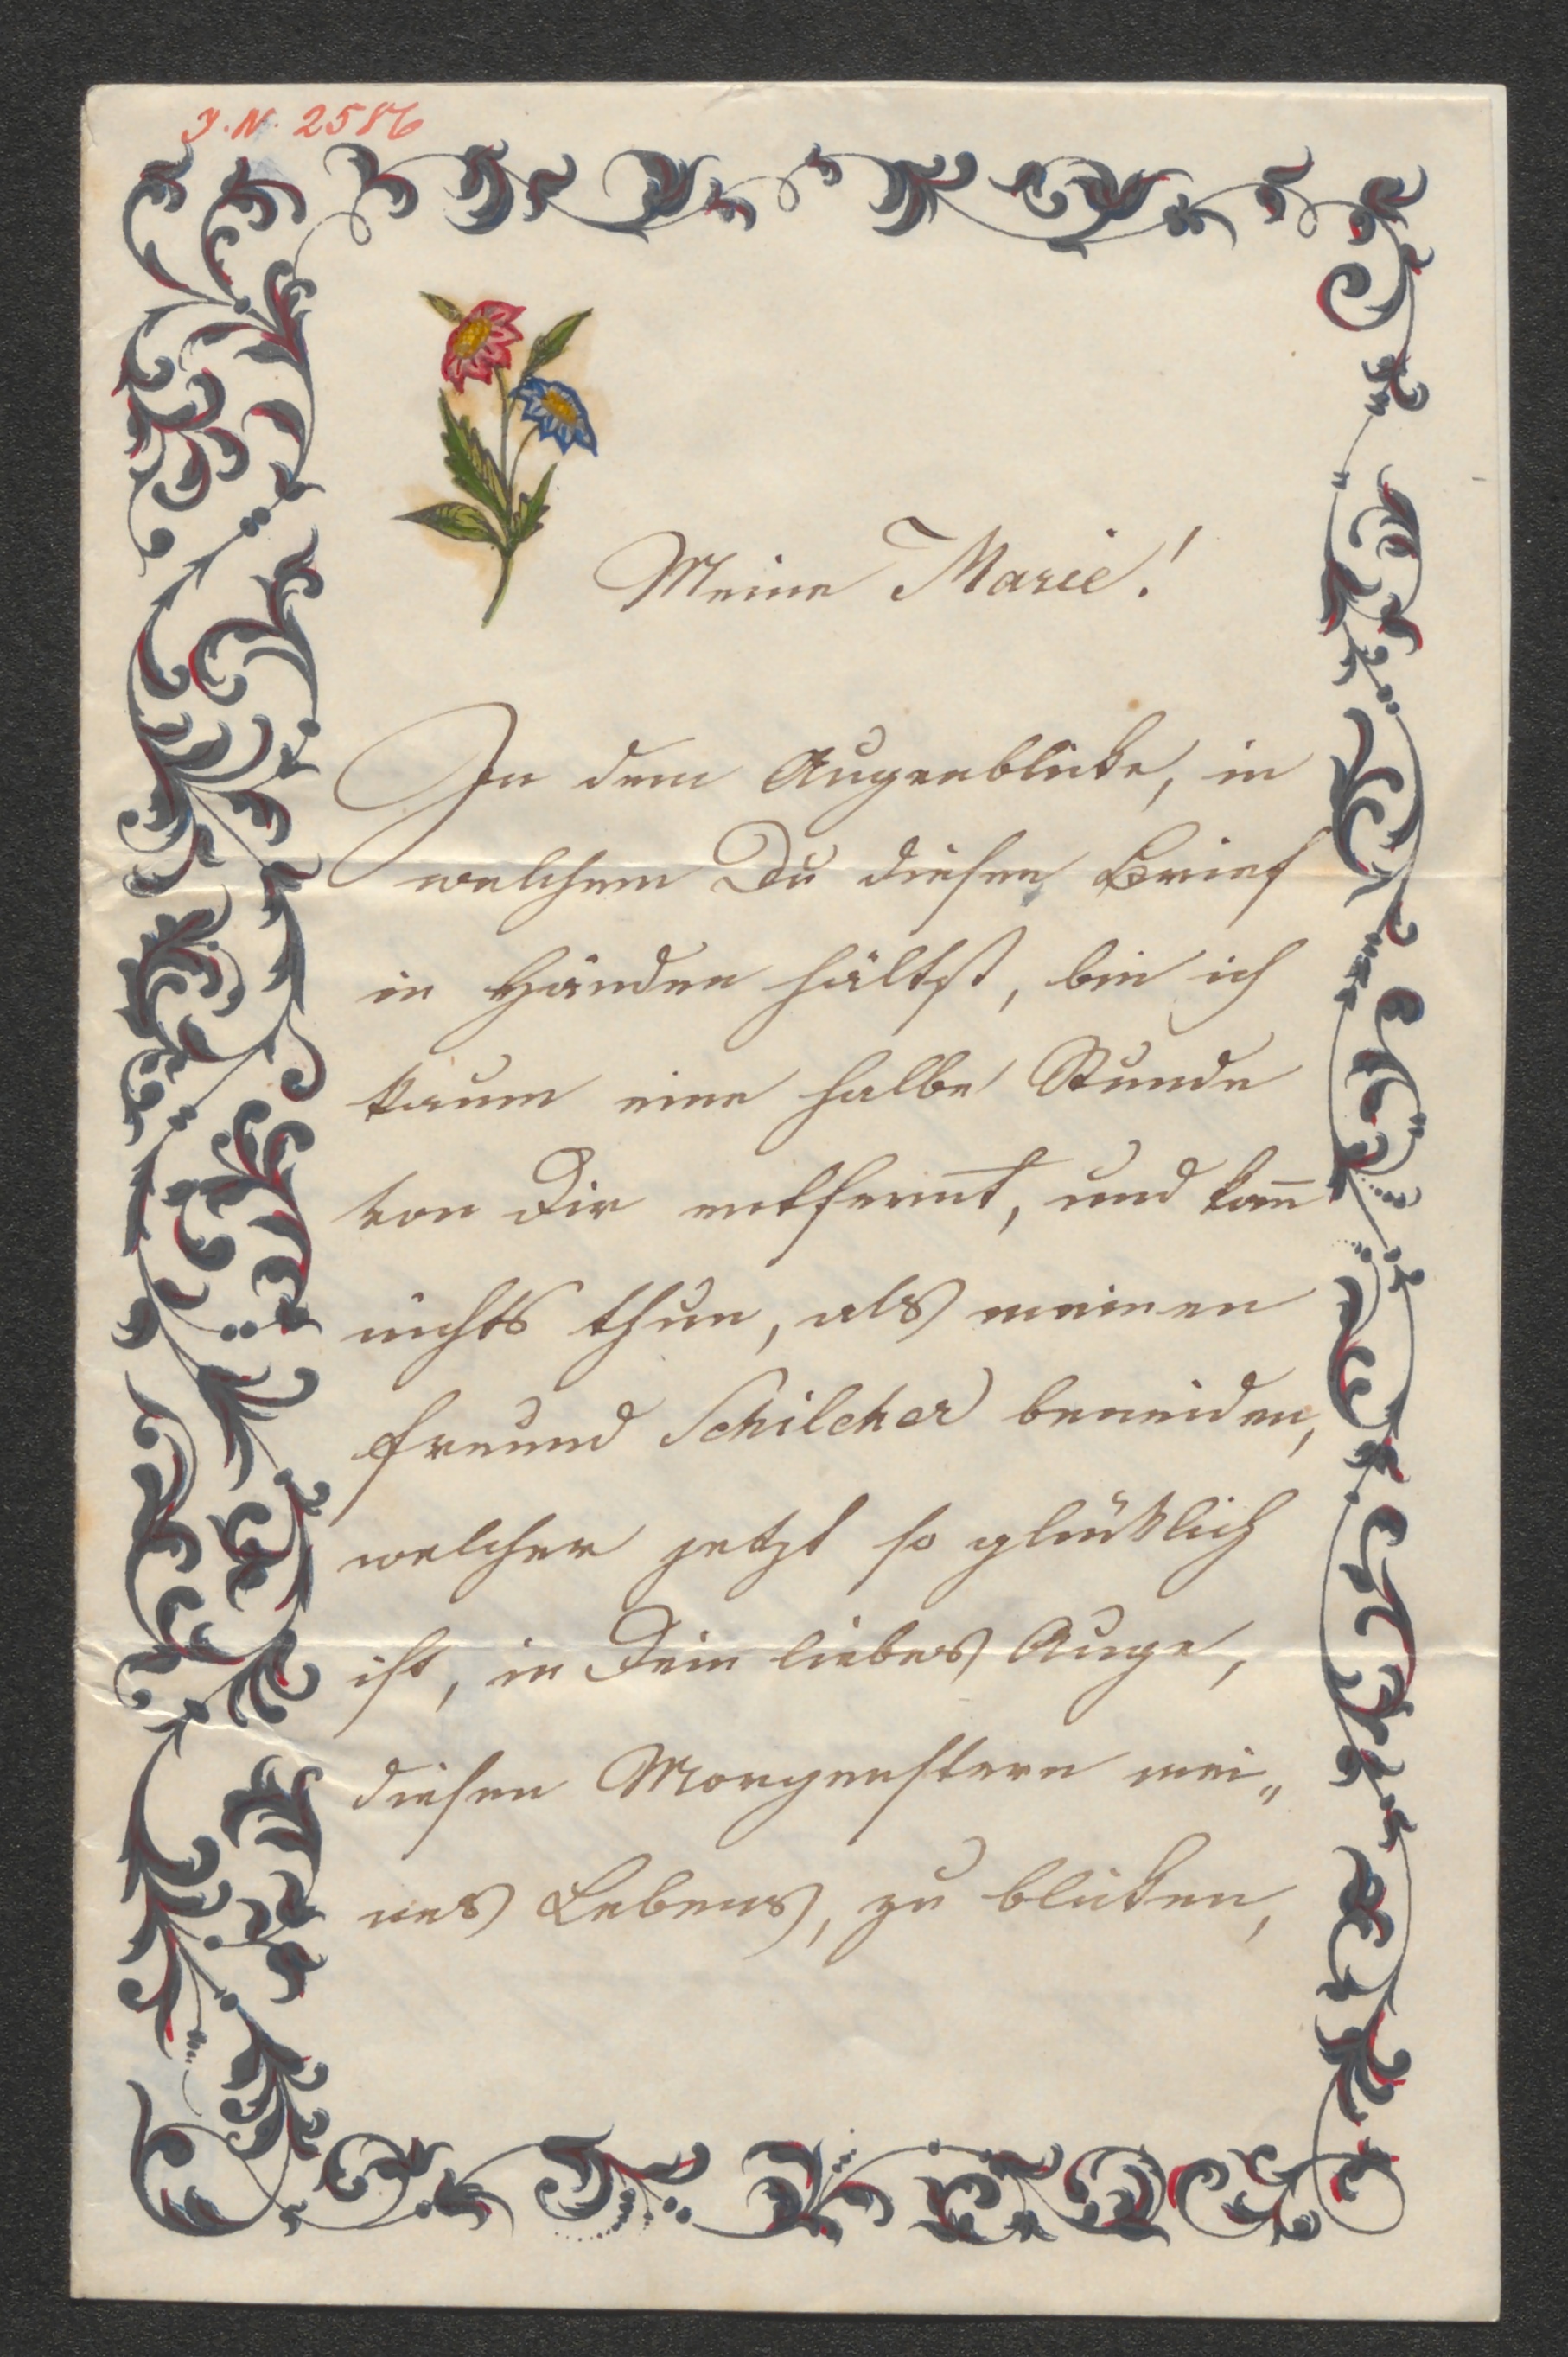 J. N. 2586
Meine Marie!
In dem Augenblicke, in
welchem Du diesen Brief
in Händen hältst, bin ich
kaum eine halbe Stunde
von Dir entfernt, und kan̄
nichts thun, als meinen
Freund Schilcher beneiden,
welcher jetzt so glücklich
ist, in Dein liebes Auge,
diesen Morgenstern mei„
nes Lebens, zu blicken,